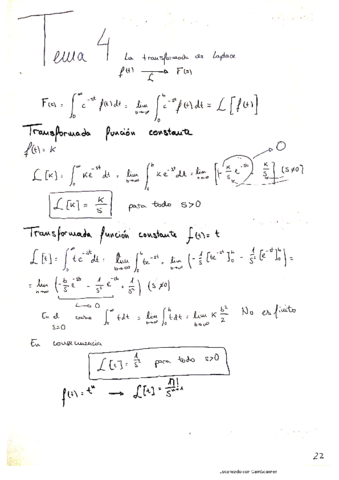 Tema 4
La transformada de Laplace
f(t) → F(s)
L
F(s) = ∫₀^∞ e^-st f(t) dt = lim ∫₀^b e^-st f(t) dt = L[f(t)]
Transformada función constante
f(t) = K
L[K] = ∫₀^∞ K e^-st dt = lim ∫₀^b K e^-st dt = lim [-K/s e^-sb + K/s] (s≠0)
0
L[K] = K/s para todo s>0
Transformada función constante f(t) = t
L[t] = ∫₀^∞ t e^-st dt = lim b→∞ ∫₀^b t e^-st = lim (-1/s [t e^-st]₀^b - 1/s² [e^-st]₀^b) =
= lim (-b/s e^-sb - 1/s² e^-sb + 1/s²) (s≠0)
→ 0
En el s=0 ∫₀^∞ t dt = lim b→∞ ∫₀^b t dt = lim b²/2 No es finito
En consecuencia
L[t] = 1/s² para todo s>0
f(t) = tⁿ → L[t] = n!/sⁿ⁺¹
22